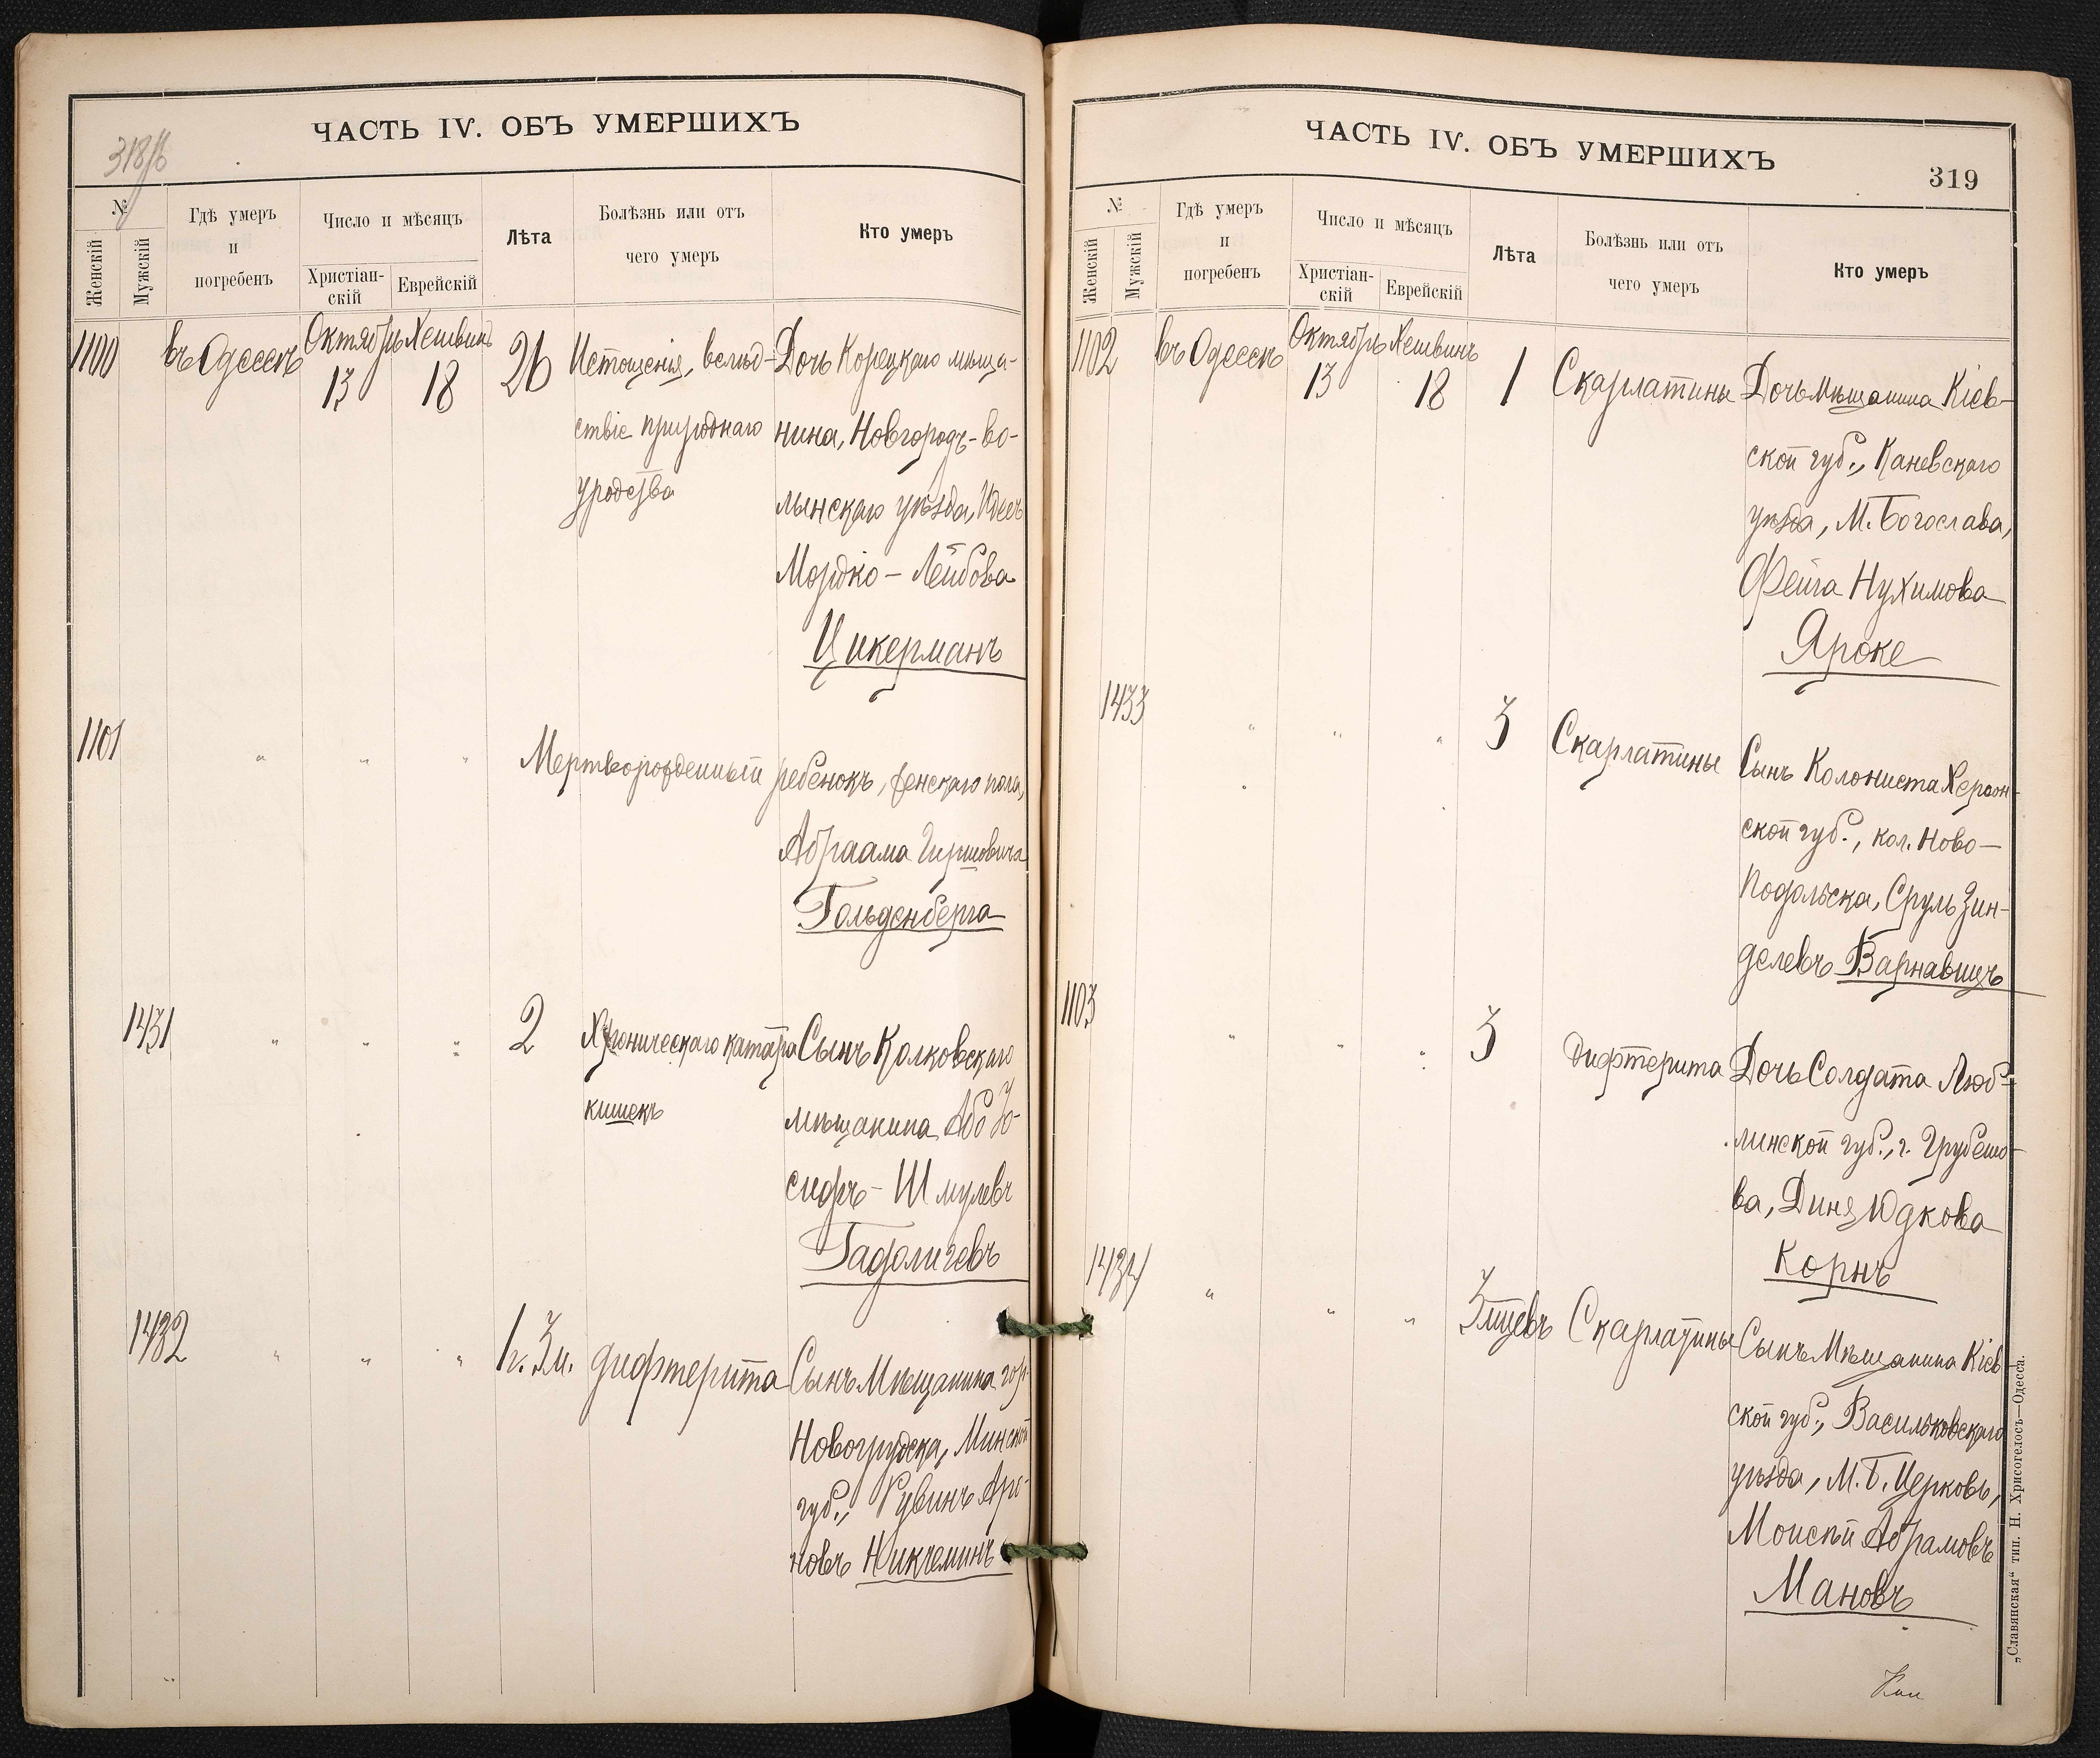 318/б
ЧАСТЬ IV. ОБЪ УМЕРШИХЪ
№
Женскій
Мужскій
Гдѣ умеръ
и
погребенъ
Число и мѣсяцъ
Христіан-
скій
Еврейскій
Лѣта
Болѣзнь или отъ
чего умеръ
Кто умеръ
1100 въ Одессѣ Октябрь 13 Хешвинъ 18
Истощенія, вслѣд-
ствіе природнаго
уродства
Дочь Корецкаго мѣща-
нина, Новгородъ-во-
лынскаго уѣзда,
Мордко-Лейбова
Цикерманъ
1101 " " "
Мертворожденный ребенокъ, женскаго пола,
Абраама Гершовича
Гольденберга
1431 " " " 2
Хроническаго катара
кишекъ
Сынъ Колковскаго
мѣщанина Або Іо-
сифъ-Шмулевъ
1432 " " " 1 г. 3 м. дифтерита
Сынъ Мѣщанина гор.
Новогрудска, Минской
губ., Рувинъ Аро-
новъ
ЧАСТЬ IV. ОБЪ УМЕРШИХЪ
319
№
Женскій
Мужскій
Гдѣ умеръ
и
погребенъ
Число и мѣсяцъ
Христіан-
скій
Еврейскій
Лѣта
Болѣзнь или отъ
чего умеръ
Кто умеръ
1102 въ Одессѣ Октябрь 13 Хешвинъ 18 1 Скарлатины
Дочь мѣщанина Кіев-
ской губ., Каневскаго
уѣзда, М. Богослава,
Фейга Нухимова
Яроке
1433 " " " 3 Скарлатины
Сынъ Колониста Херсон-
ской губ., кол. Ново-
Подольска, Сруль Зин-
делевъ Варнавицъ
1103 " " " 3 Дифтерита
Дочь Солдата Люб-
линской губ., г. Грубешо-
ва, Диня Юдкова
Корнъ
1434 " " " 3 мцевъ Скарлатины
Сынъ Мѣщанина Кіев
ской губ., Васильковскаго
уѣзда, М. Б. Церковь,
Моисѣй Абрамовъ
Мановъ
„Славянская“ тип. Н. Хрисогелосъ—Одесса.